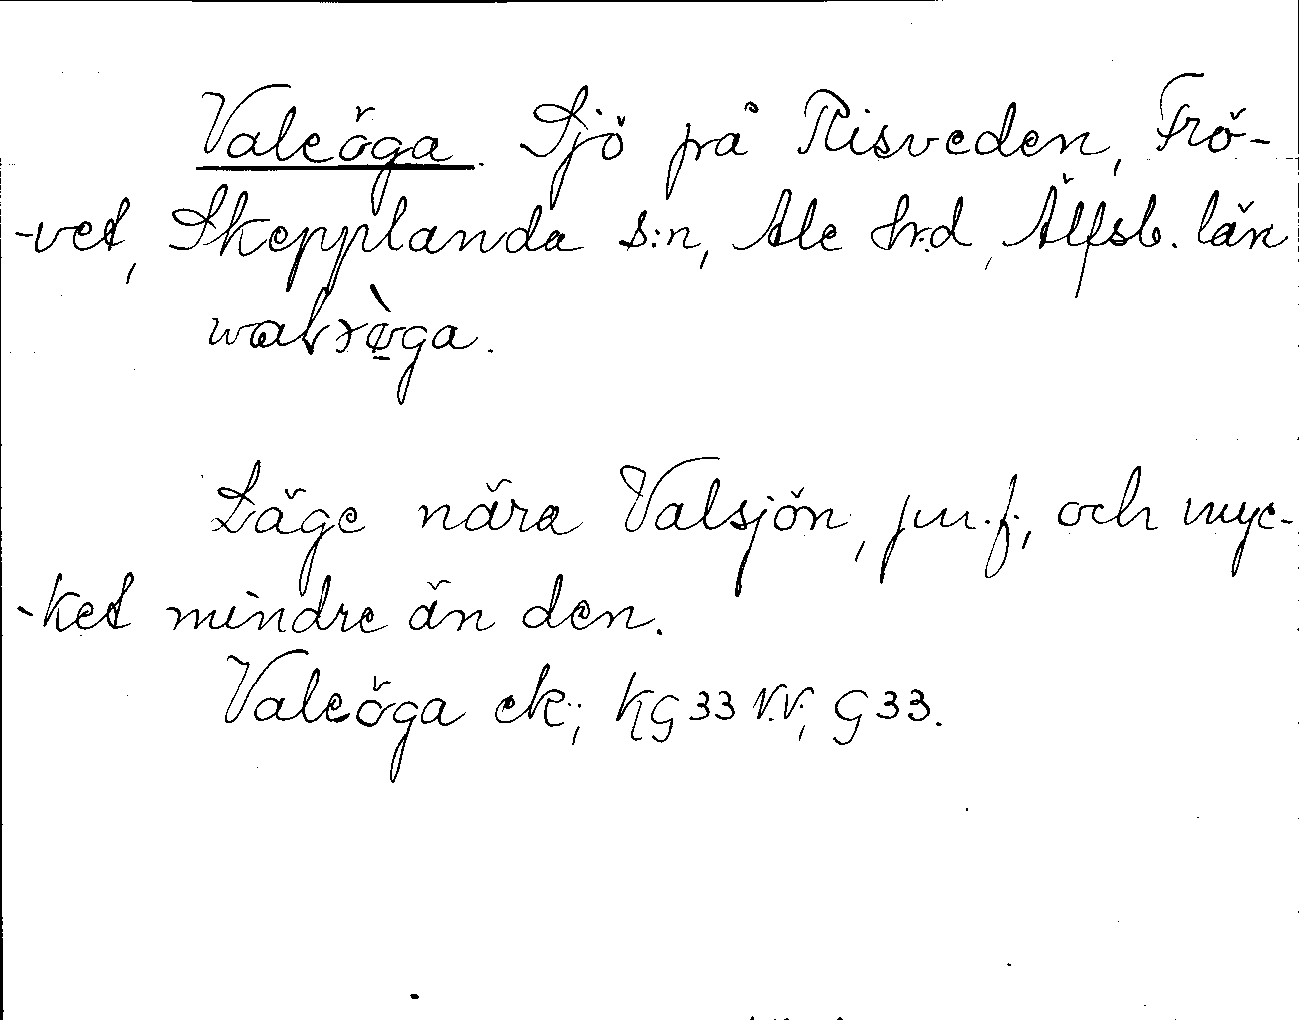 Valeöga. Sjö på Risveden, Frö-
-vet, Skepplanda s:n, Ale hrd, Älfsb. län
Läge nära Valsjön, jm.f., och myc-
-ket mindre än den.
Valeöga ek.; KG33 V.V; G33.